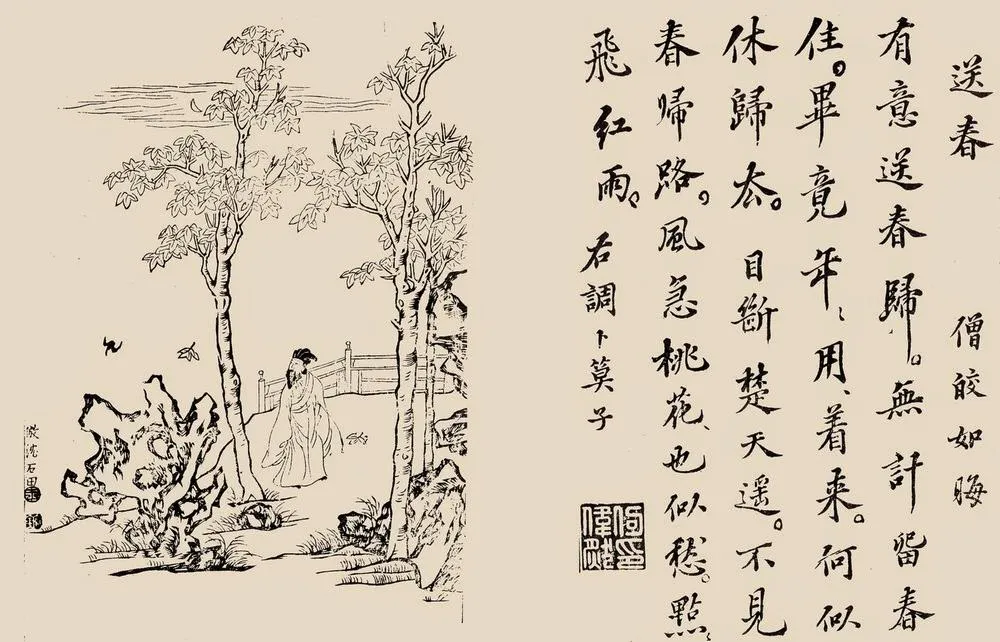 送春
僧皎如晦
有意送春歸。無計畱春
住。畢竟年〻用、着来。何似
休歸厺。目斷楚天遥。不見
春帰路。風急桃花、也似愁。點〻
飛紅雨。右調卜算子
倣沈石田